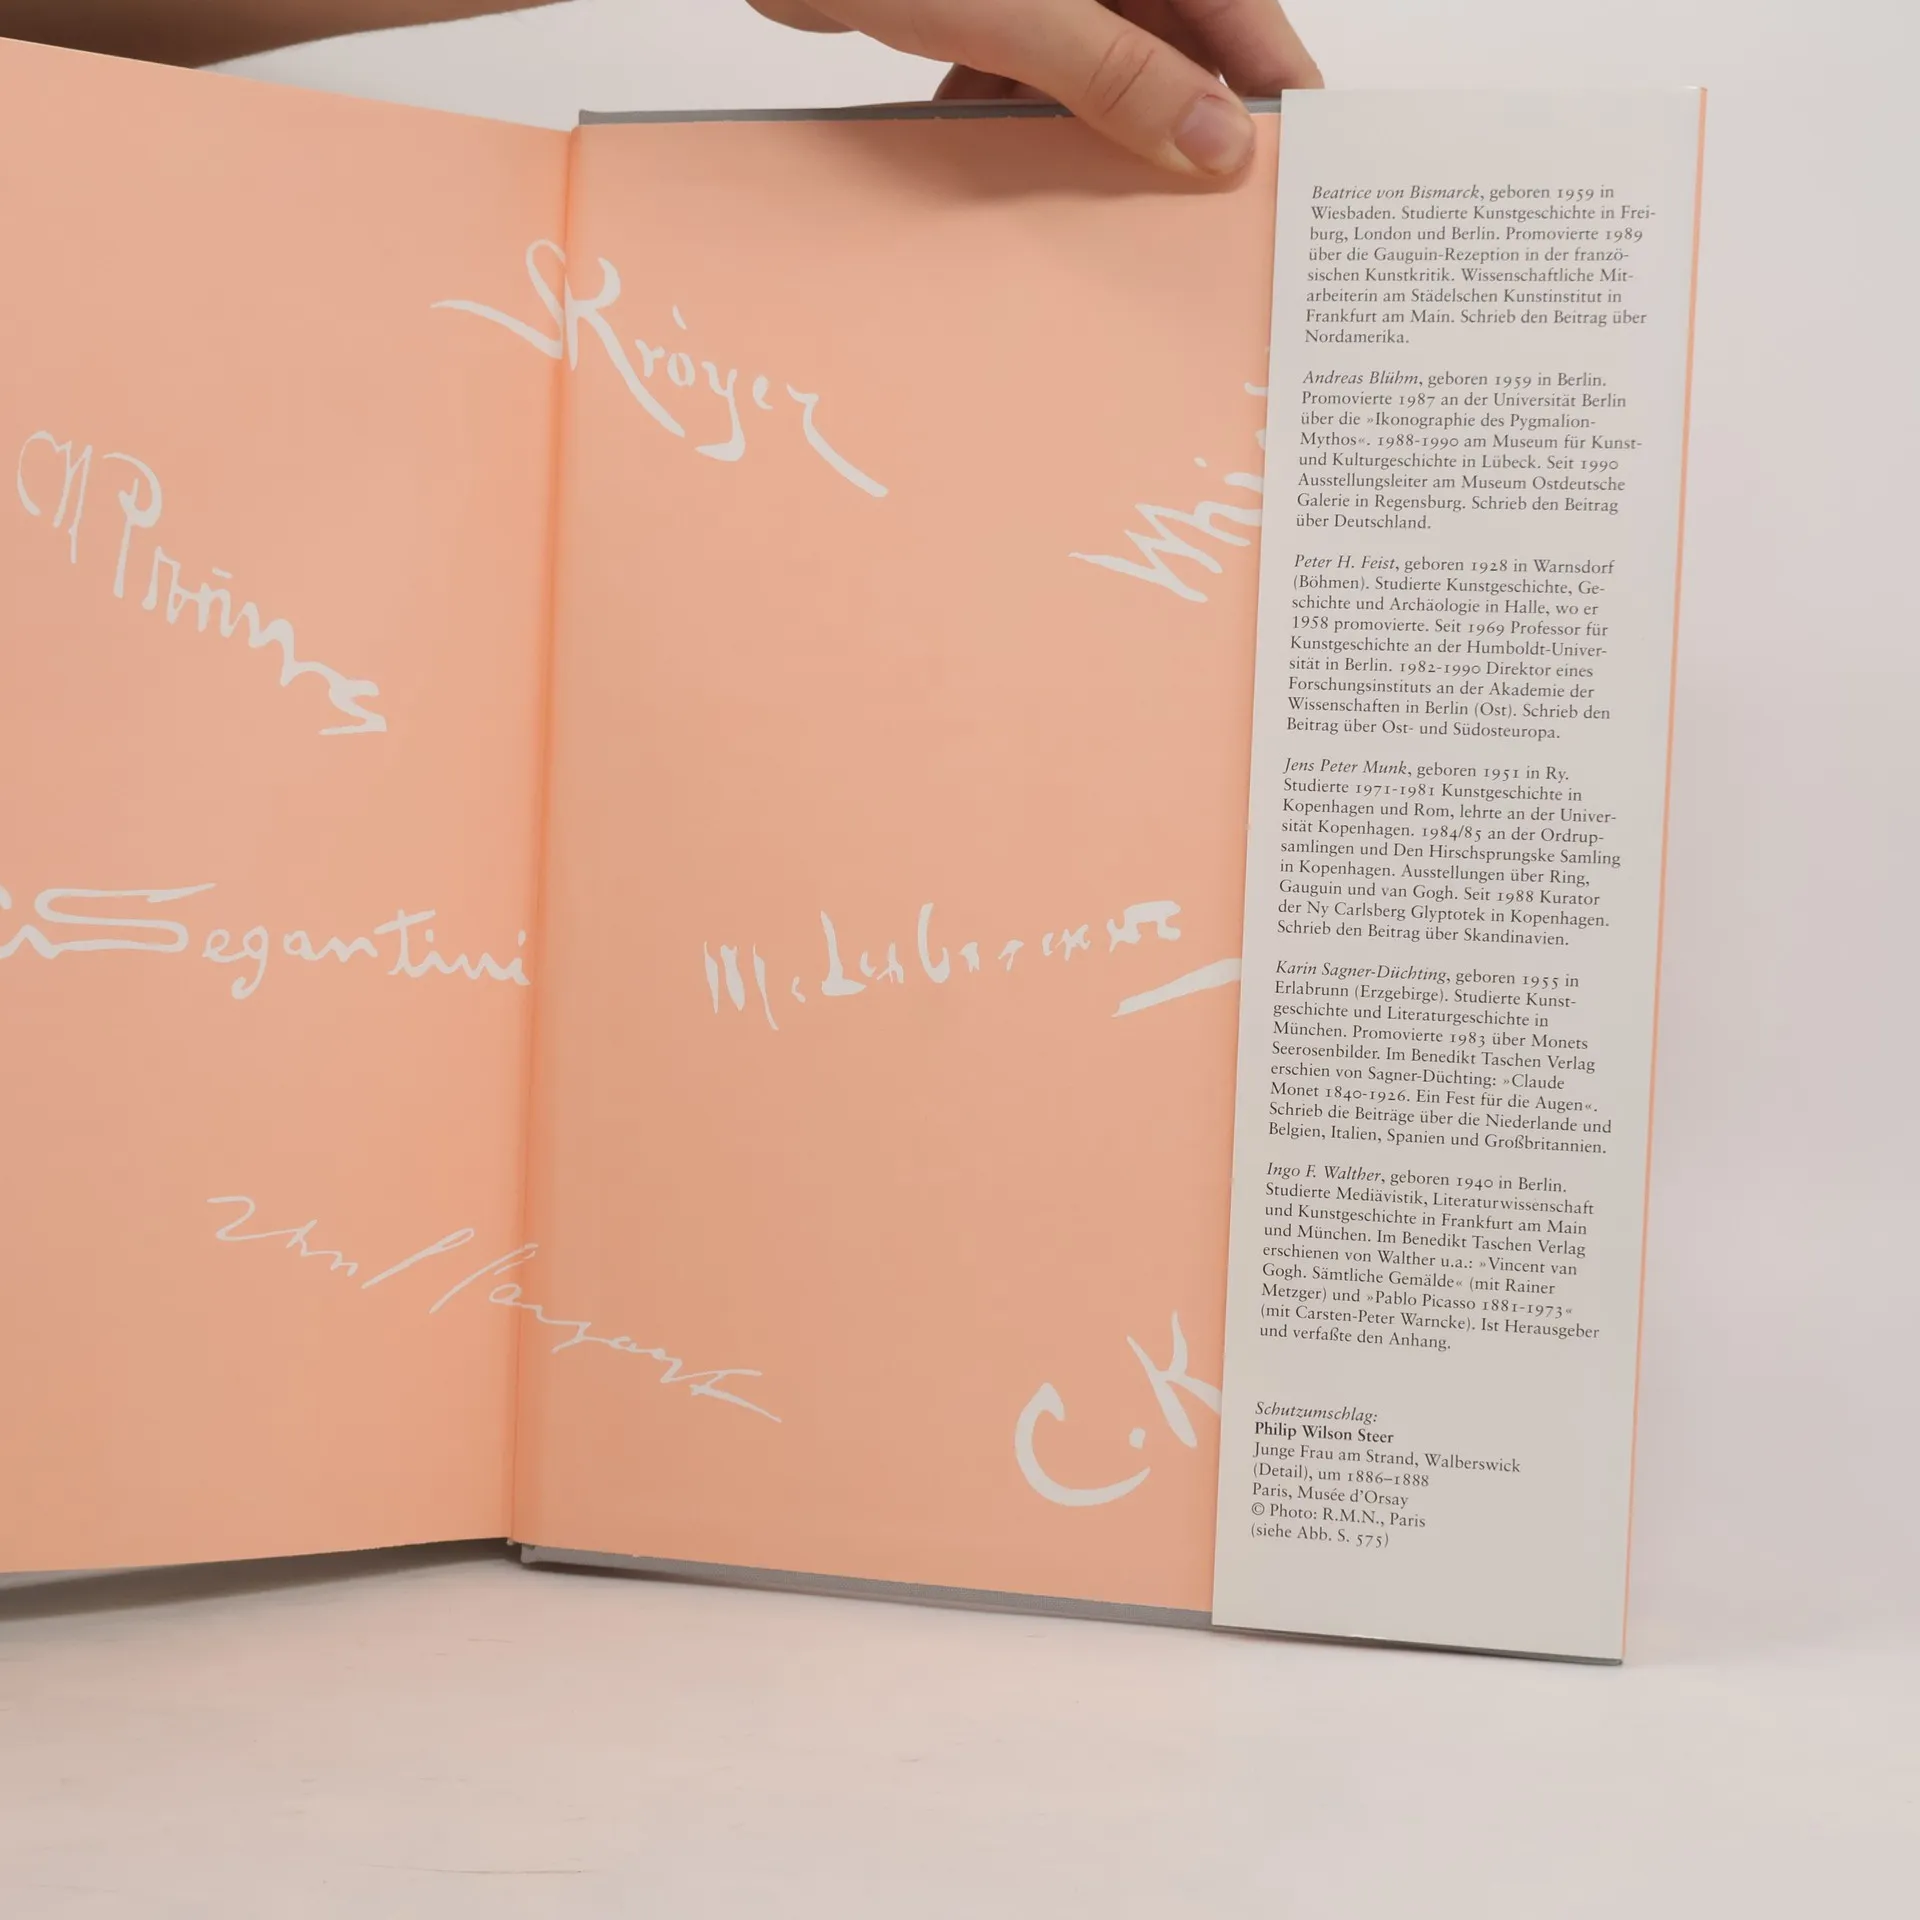 Kröyer
Segantini
M. Liebermann
John S Sargent
C. K
Beatrice von Bismarck, geboren 1959 in
Wiesbaden. Studierte Kunstgeschichte in Frei-
burg, London und Berlin. Promovierte 1989
über die Gauguin-Rezeption in der franzö-
sischen Kunstkritik. Wissenschaftliche Mit-
arbeiterin am Städelschen Kunstinstitut in
Frankfurt am Main. Schrieb den Beitrag über
Nordamerika.
Andreas Blühm, geboren 1959 in Berlin.
Promovierte 1987 an der Universität Berlin
über die »Ikonographie des Pygmalion-
Mythos«. 1988-1990 am Museum für Kunst-
und Kulturgeschichte in Lübeck. Seit 1990
Ausstellungsleiter am Museum Ostdeutsche
Galerie in Regensburg. Schrieb den Beitrag
über Deutschland.
Peter H. Feist, geboren 1928 in Warnsdorf
(Böhmen). Studierte Kunstgeschichte, Ge-
schichte und Archäologie in Halle, wo er
1958 promovierte. Seit 1969 Professor für
Kunstgeschichte an der Humboldt-Univer-
sität in Berlin. 1982-1990 Direktor eines
Forschungsinstituts an der Akademie der
Wissenschaften in Berlin (Ost). Schrieb den
Beitrag über Ost- und Südosteuropa.
Jens Peter Munk, geboren 1951 in Ry.
Studierte 1971-1981 Kunstgeschichte in
Kopenhagen und Rom, lehrte an der Univer-
sität Kopenhagen. 1984/85 an der Ordrup-
samlingen und Den Hirschsprungske Samling
in Kopenhagen. Ausstellungen über Ring,
Gauguin und van Gogh. Seit 1988 Kurator
der Ny Carlsberg Glyptotek in Kopenhagen.
Schrieb den Beitrag über Skandinavien.
Karin Sagner-Düchting, geboren 1955 in
Erlabrunn (Erzgebirge). Studierte Kunst-
geschichte und Literaturgeschichte in
München. Promovierte 1983 über Monets
Seerosenbilder. Im Benedikt Taschen Verlag
erschien von Sagner-Düchting: »Claude
Monet 1840-1926. Ein Fest für die Augen«.
Schrieb die Beiträge über die Niederlande und
Belgien, Italien, Spanien und Großbritannien.
Ingo F. Walther, geboren 1940 in Berlin.
Studierte Mediävistik, Literaturwissenschaft
und Kunstgeschichte in Frankfurt am Main
und München. Im Benedikt Taschen Verlag
erschienen von Walther u.a.: »Vincent van
Gogh. Sämtliche Gemälde« (mit Rainer
Metzger) und »Pablo Picasso 1881-1973«
(mit Carsten-Peter Warncke). Ist Herausgeber
und verfaßte den Anhang.
Schutzumschlag:
Philip Wilson Steer
Junge Frau am Strand, Walberswick
(Detail), um 1886–1888
Paris, Musée d'Orsay
© Photo: R.M.N., Paris
(siehe Abb. S. 575)